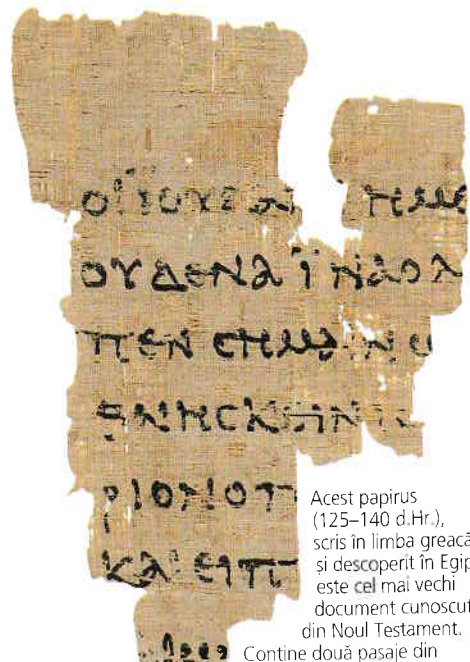 ΟΙ ΙΟΥΔΑΙ ΗΜΕ
ΟΥΔΕΝΑ ΪΝΑ Ο Λ
ΠΕΝ ΣΗΜΑΙΝΩ
ΘΝΗΣΚΕΙΝ ΙΣ
ΡΙΟΝ Ο Π
ΚΑΙ ΕΙΠ
Acest papirus
(125–140 d.Hr.),
scris în limba greacă
și descoperit în Egip
este cel mai vechi
document cunoscut
din Noul Testament.
Conține două pasaje din